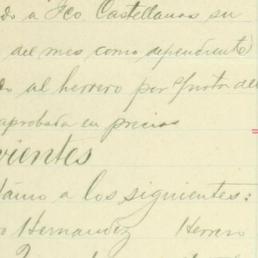 do a Fco Castellanos su
del mes como dependiente
do al herrero por
aprobada en precios
vientes
a los siguientes:
o Hernandez Herrero